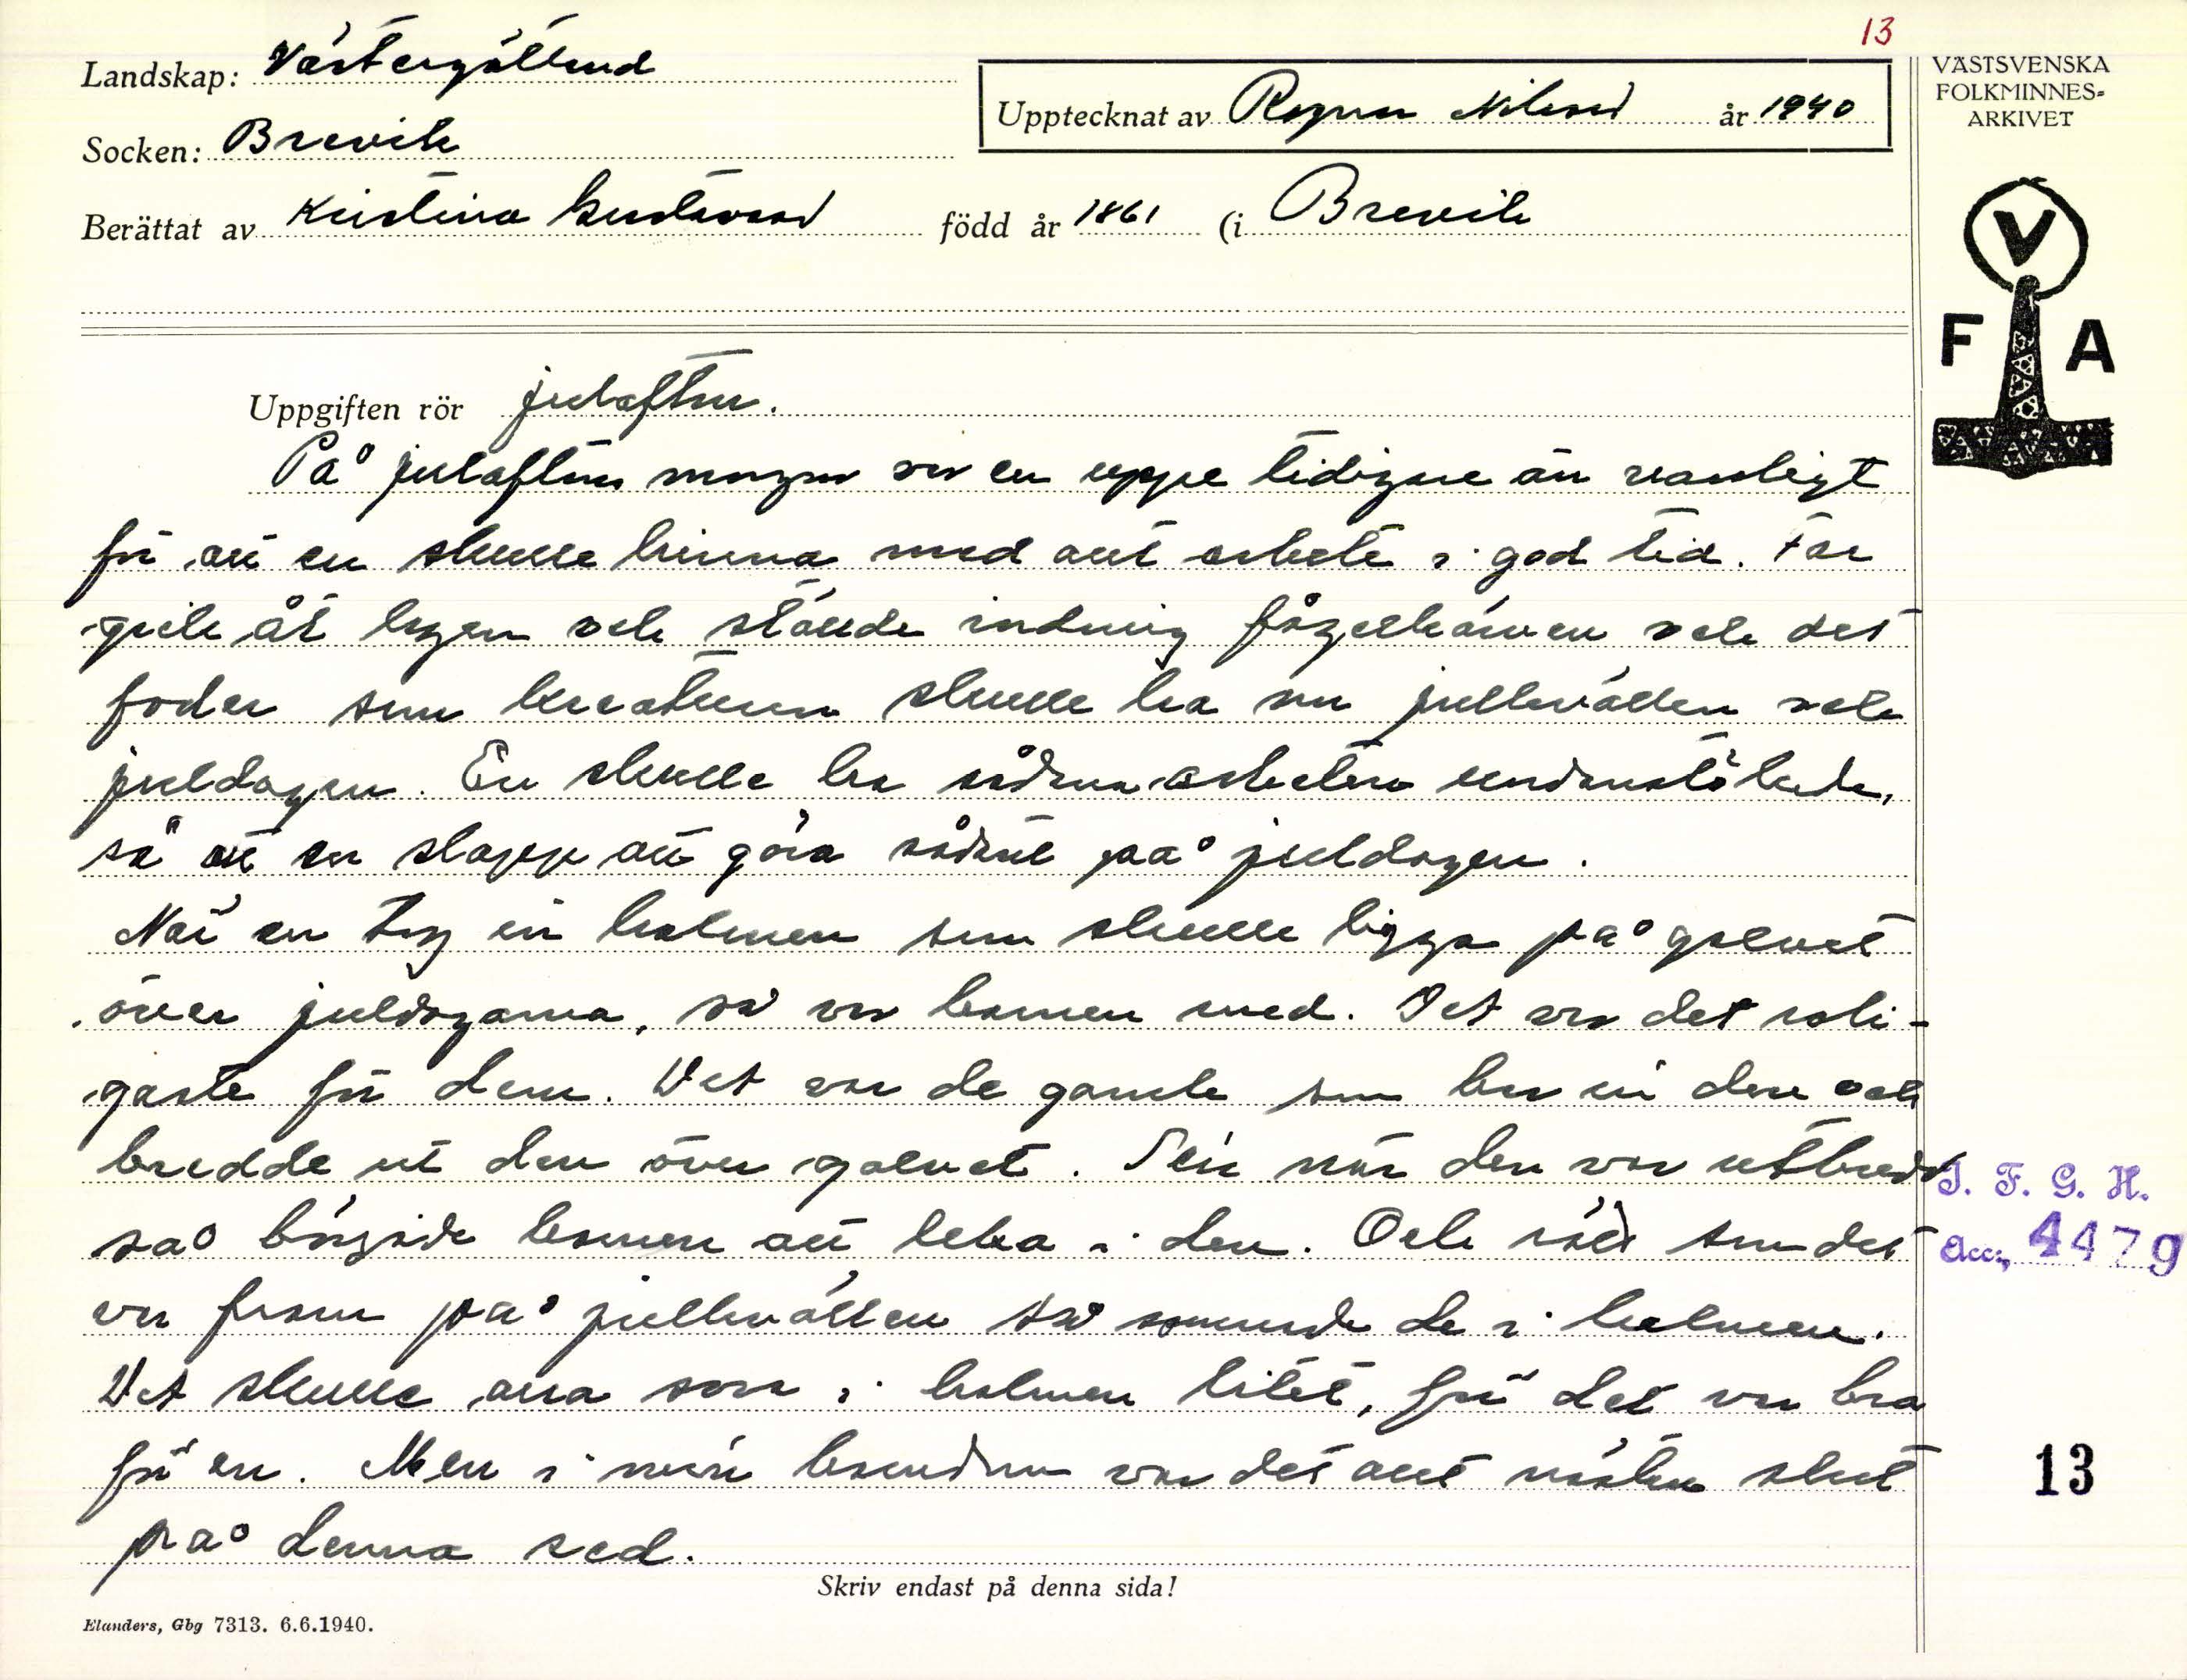 13
Landskap: Västergötland
VÄSTSVENSKA
FOLKMINNES-
ARKIVET
Upptecknat av Ragnar Nilsson år 1940
Socken: Brevik
Berättat av Kristina Gustavsson född år 1861 (i Brevik
V
F A
Uppgiften rör julafton.
På julaftons morgon var en uppe tidigare än vanligt
för att en skulle hinna med allt arbete i god tid. Far
gick åt logen och ställde i ordning fågelkärven och det
foder som kreaturen skulle ha om julkvällen och
juldagen. En skulle ha sådana arbeten undanstökade,
så att en slapp att göra sådant på juldagen.
När en tog in halmen som skulle ligga på golvet
över juldagarna, så var barnen med. Det var det roli-
gaste för dem. Det var de gamla som bar in den och
bredde ut den över golvet. Sen när den var utbredd
så började barnen att leka i den. Och rätt som det
var fram på julkvällen så somnade de i halmen.
Det skulle alla sova i halmen litet, för det var bra
för en. Men i min barndom var det allt nästan slut
på denna sed.
I. F. G. H.
Acc. 4479
13
Skriv endast på denna sida!
Elanders, Gbg 7313. 6.6.1940.